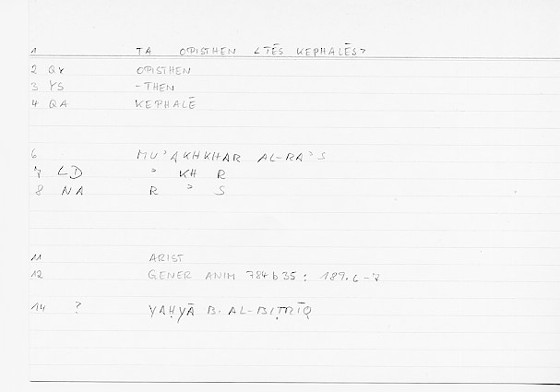 1 TA OPISTHEN <TĒS KEPHALĒS>
2 QY OPISTHEN
3 YS -THEN
4 QA KEPHALĒ
6 MUʾAKHKHAR AL-RAʾS
7 LD ʾ KH R
8 NA R ʾ S
11 ARIST
12 GENER ANIM 784b35 : 189.6-7
14 ? YAḤYĀ B. AL-BIṬRĪQ